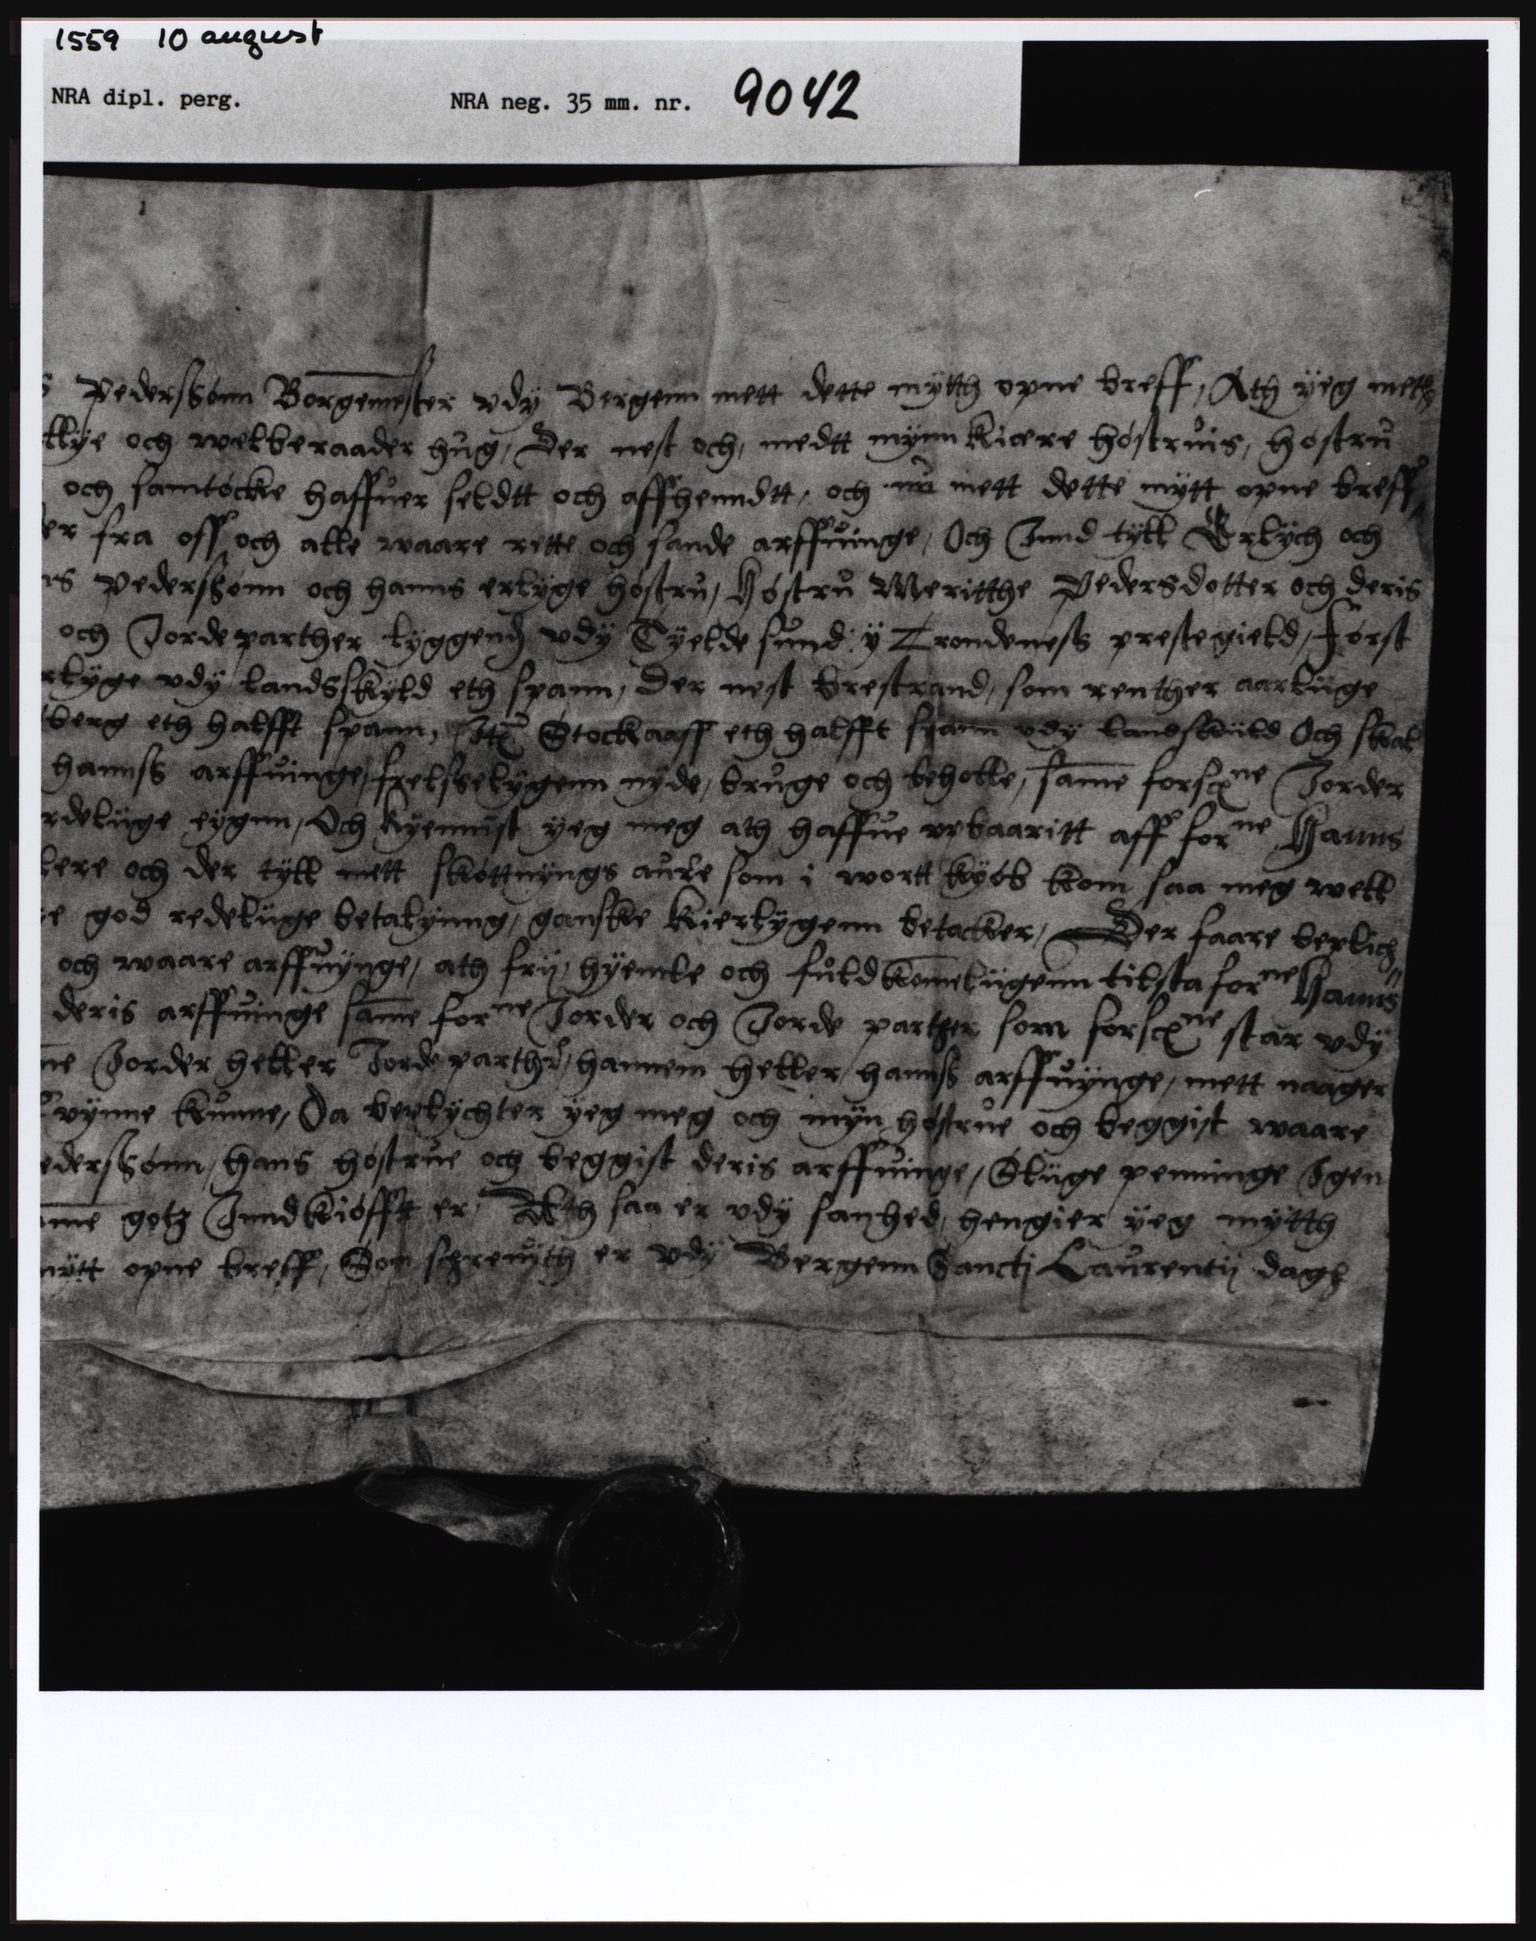 1559 10 august
NRA dipl. perg. NRA neg. 35 mm. nr. 9042
s Pederssønn Borgemester vdÿ Bergenn mett dette mÿtth opne breff, Ath ÿeg meth
och welberaader hůg, Der nest och, medtt mÿnn kiære høstrůis, høstrů
och samtöcke haffůer seldtt och affhenndtt, och nů mett dette mÿtt opne breff
er fra oss och alle waare rette och sande arffůinge, Och Innd tÿll Erlÿch och
ns Pederssønn och hanns erlÿge høstrů, Høstrů Meritthe Pedersdotter och deris
och Jorde parther lÿggend vdÿ Tÿelde sůnd ÿ Trondeness prestegield, Først
rlÿge vdÿ landsskÿld eth spann, Der nest brestrand, som renther aarlůge
berg eth halfft spann, Stockaass eth halfft spann vdÿ landskÿld Och skal
hannss arffůinge, frelsselÿgenn nÿde, brůge och beholle, same forscne Jorder
rdelůge eÿgnn, Och kÿennist ÿeg meg ath haffůe vpbaaritt aff forne Hanns
lere och der tÿll mett skøttnÿngs aůre som i wortt kÿøb kom saa meg well
ie god redelůge betalÿnng, ganske kierlÿgenn betacker, Der faare beplich
och waare arffůÿnge, ath frÿ, hÿemle och fůldkomelůgenn tilsta forne Hanns
deris arffůinge same forne Jorder och Jorde parther som forscne star vdÿ
ne Jorder heller Jorde parther, hannem heller hannss arffůÿnge, mett naager
vÿnne kůnne, Da beplÿchter ÿeg meg och mÿn høstrůe och beggist waare
ederssønn, hans høstrůe och beggist deris arffůinge, Slůge penninge Igen
ame gotz Inndkiøfft er, Ath saa er vdÿ sanhed, hengier ÿeg mÿtth
mÿtt opne breff, Som schreůith er vdÿ Bergenn Sanctj Laůrentij dagh